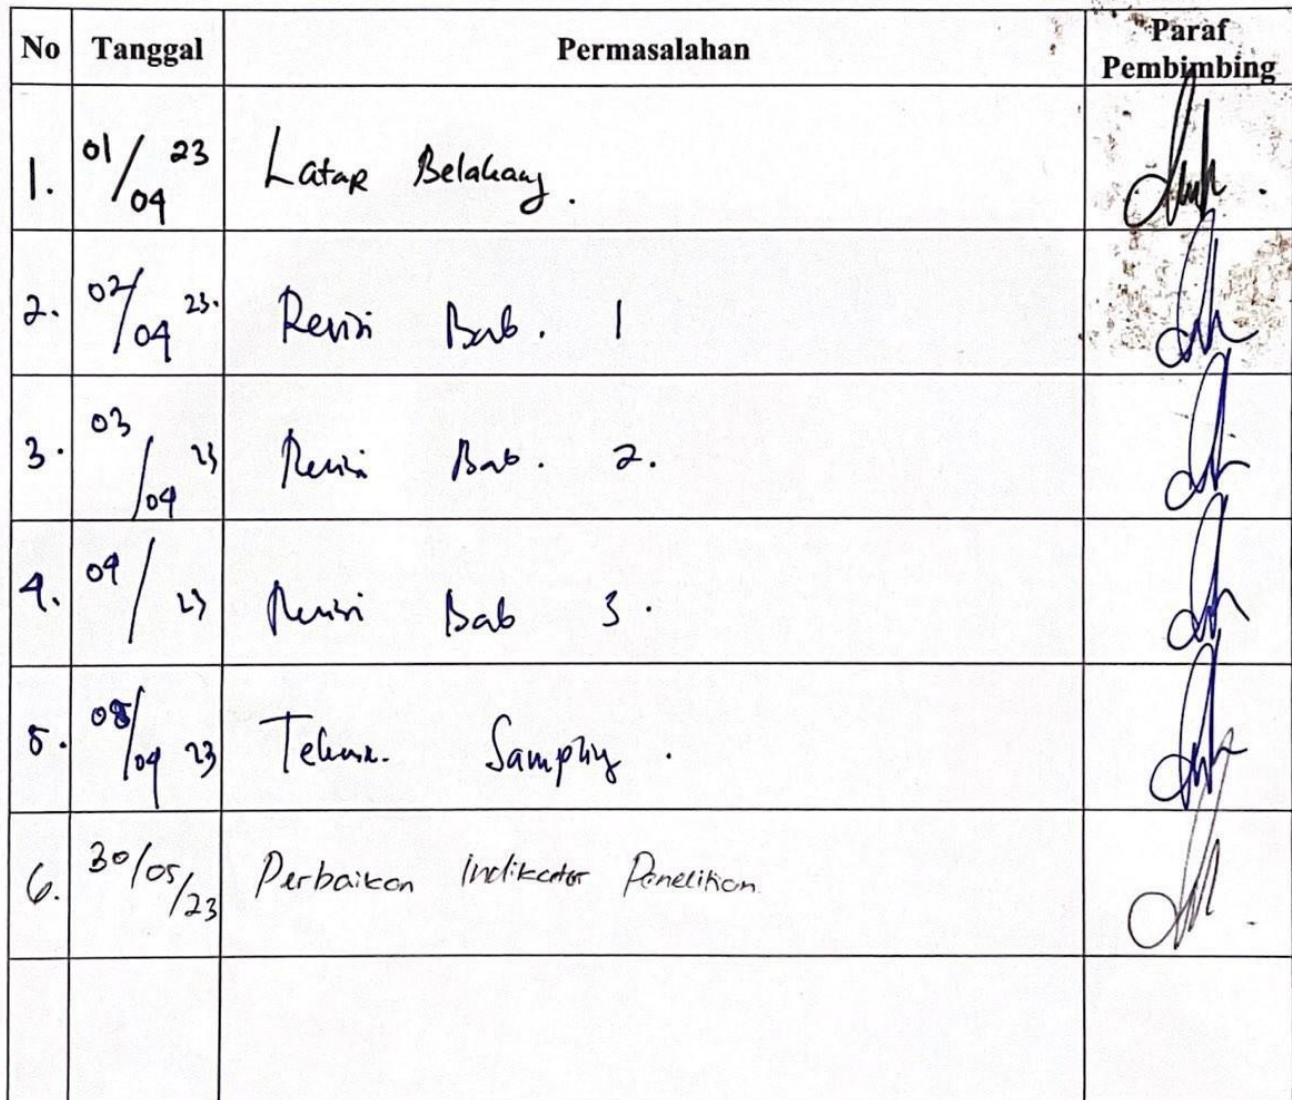 No Tanggal Permasalahan Paraf Pembimbing
1. 01/04 23 Latar Belakang.
2. 02/04 23. Revisi Bab. 1
3. 03/04 23 Revisi Bab. 2.
4. 04/23 Revisi Bab 3.
5. 23 Teknik. Sampling.
6. 30/05/23 Perbaikan Indikator Penelitian